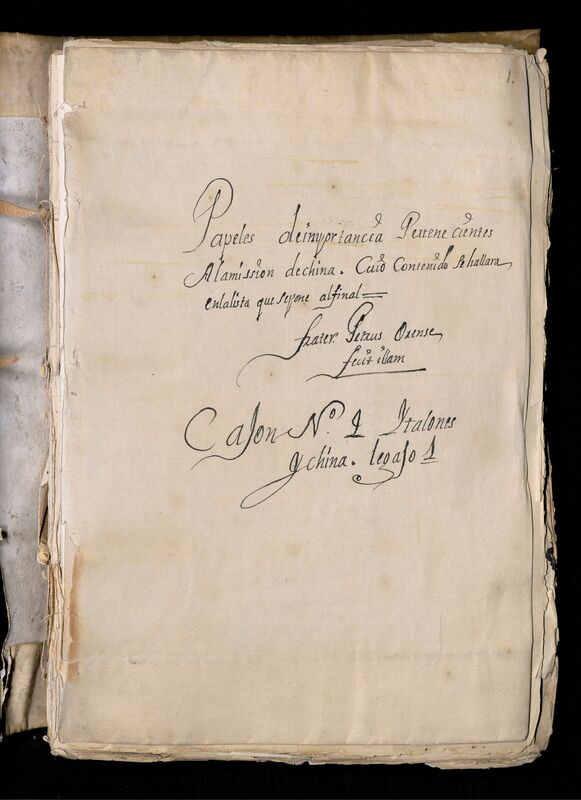 1.
Papeles deimportancia Pertenecientes
Alamission dechina. Cuio Contenido sehallara
enlalista que sepone alfinal =
frater Petrus Orense
fecit illam
Cason N.º 1 Ytalones
ychina. legaso 1